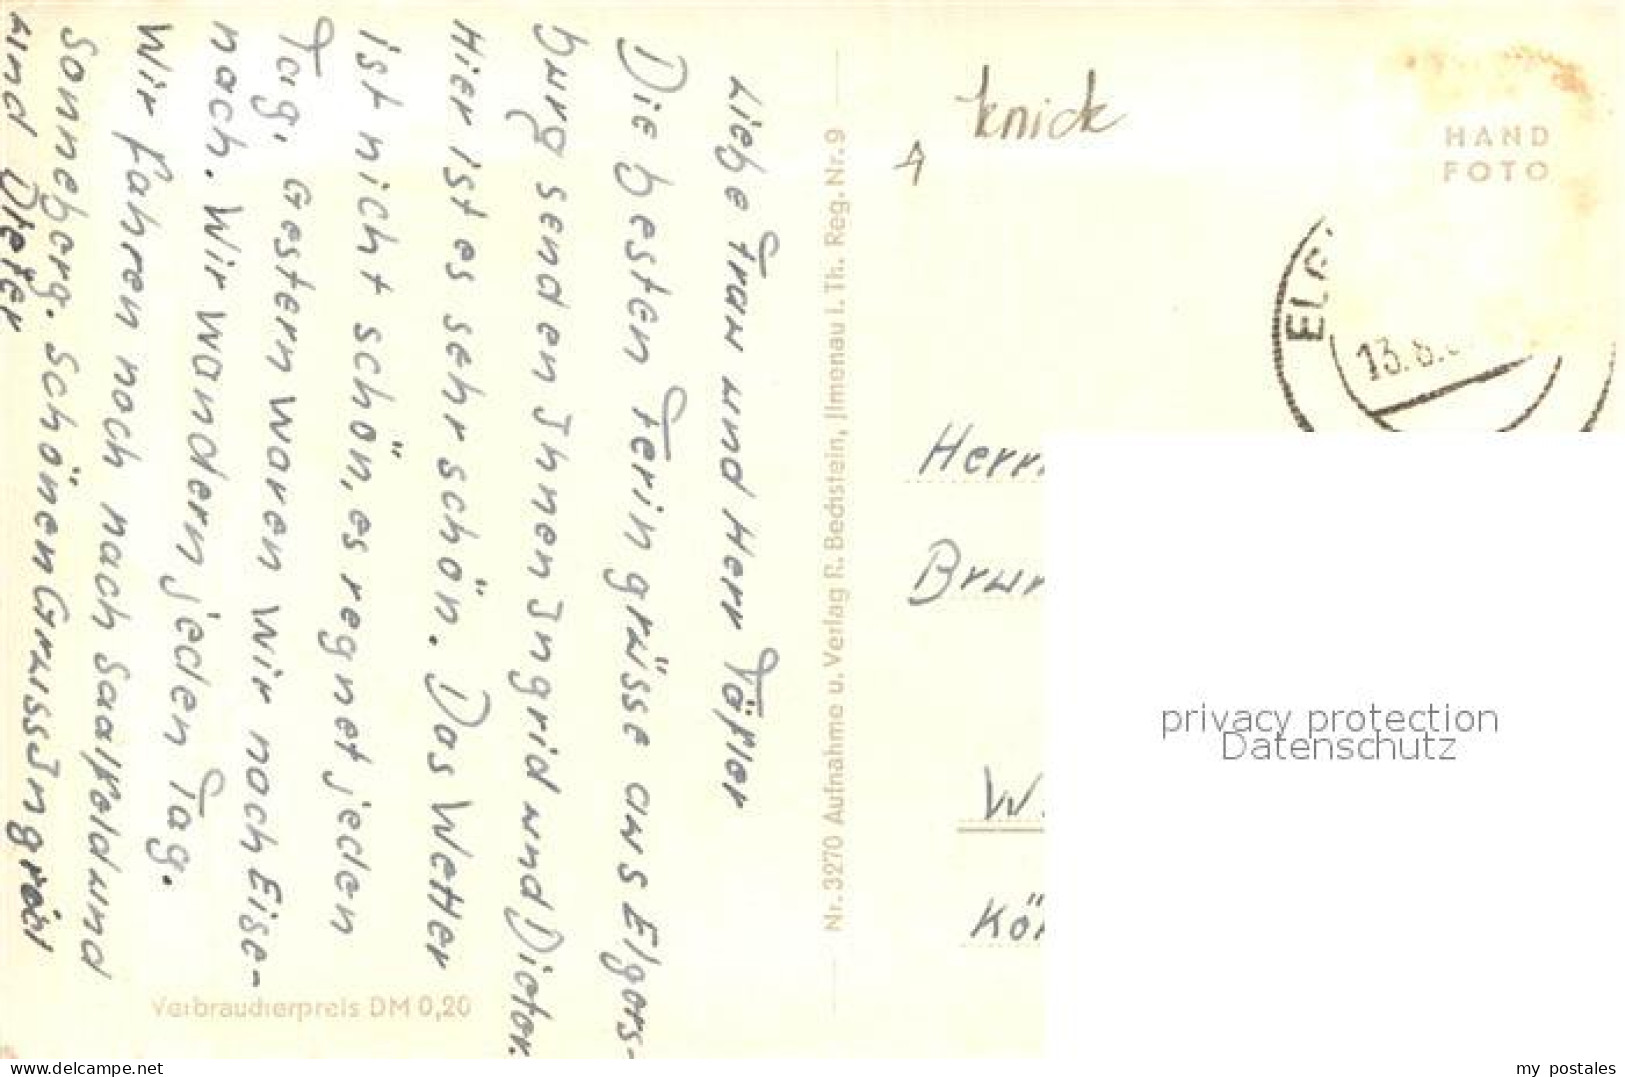 Liebe Frau und Herr Töfler
Die besten Feringrüsse aus Elgers-
burg senden Ihnen Ingrid und Dieter.
Hier ist es sehr schön. Das Wetter
ist nicht schön, es regnet jeden
Tag. Gestern waren wir noch Eise-
nach. Wir wandern jeden Tag.
Wir fahren noch nach Saalfeld und
Sonneberg. Schönen Gruss Ingrid
und Dieter
Verbraucherpreis DM 0,20
Nr. 3270 Aufnahme u. Verlag R. Bechstein, Jlmenau i. Th. Reg. Nr. 9
knick
4
HAND
FOTO
ELG
13.8.
Herrn
Brun
W.
Kö
privacy protection
Datenschutz
www.delcampe.net
my_postales